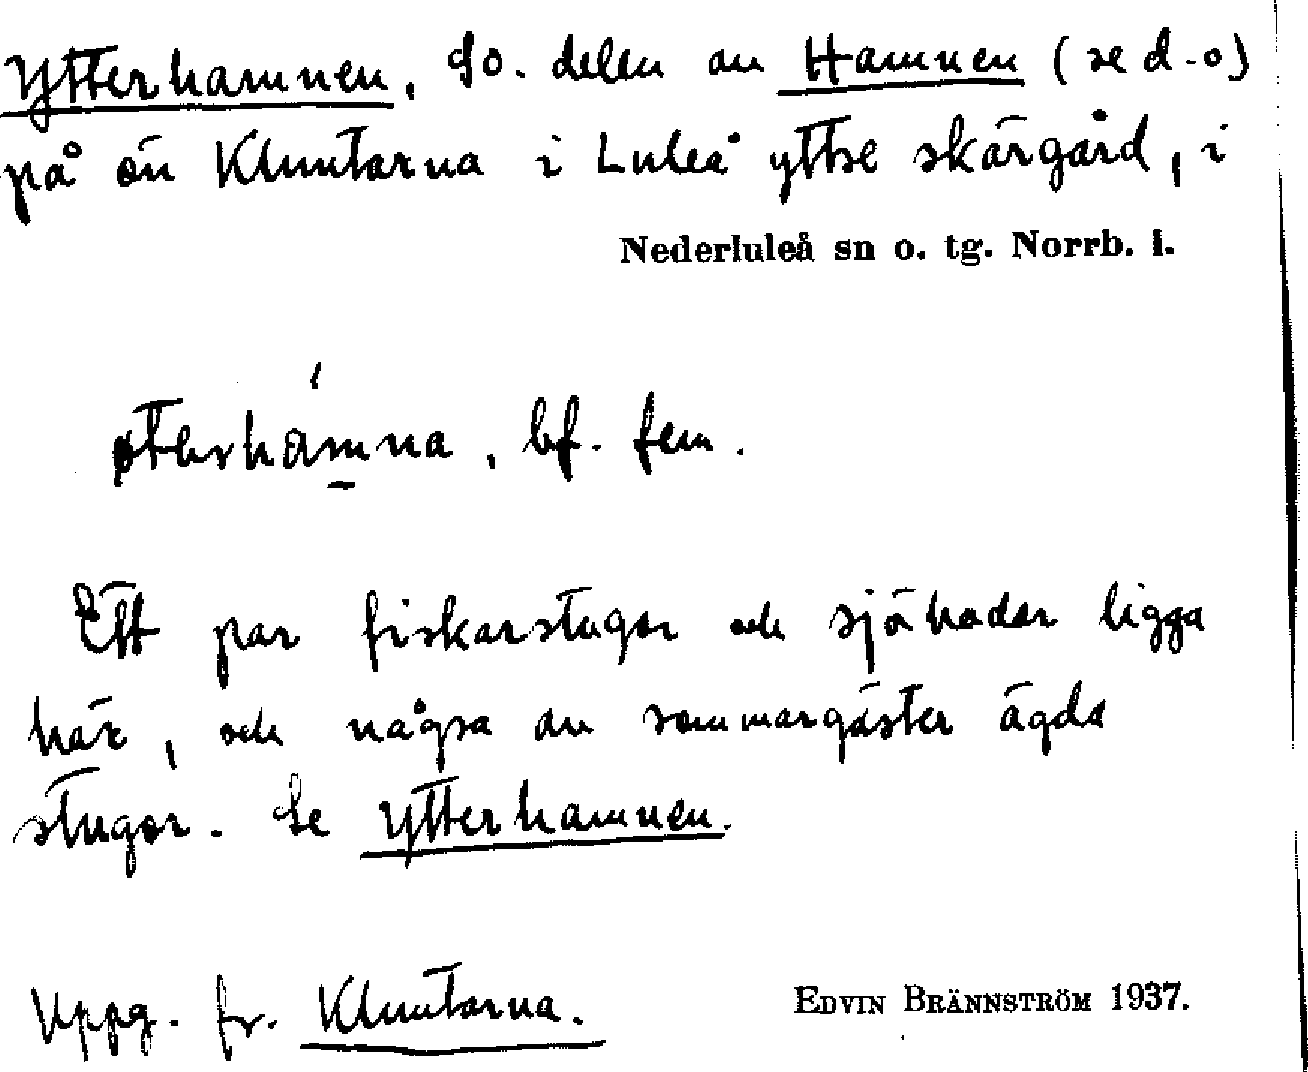 Ytterhamnen, So. delen av Hamnen (se d-o)
på ön Kluntarna i Luleå yttre skärgård, i
Nederluleå sn o. tg. Norrb. l.
bf. fem.
Ett par fiskarstugor och sjöbodar ligga
här, och några av sommargäster ägda
stugor. Se Ytterhamnen.
Uppg. fr. Kluntarna.
EDVIN BRÄNNSTRÖM 1937.